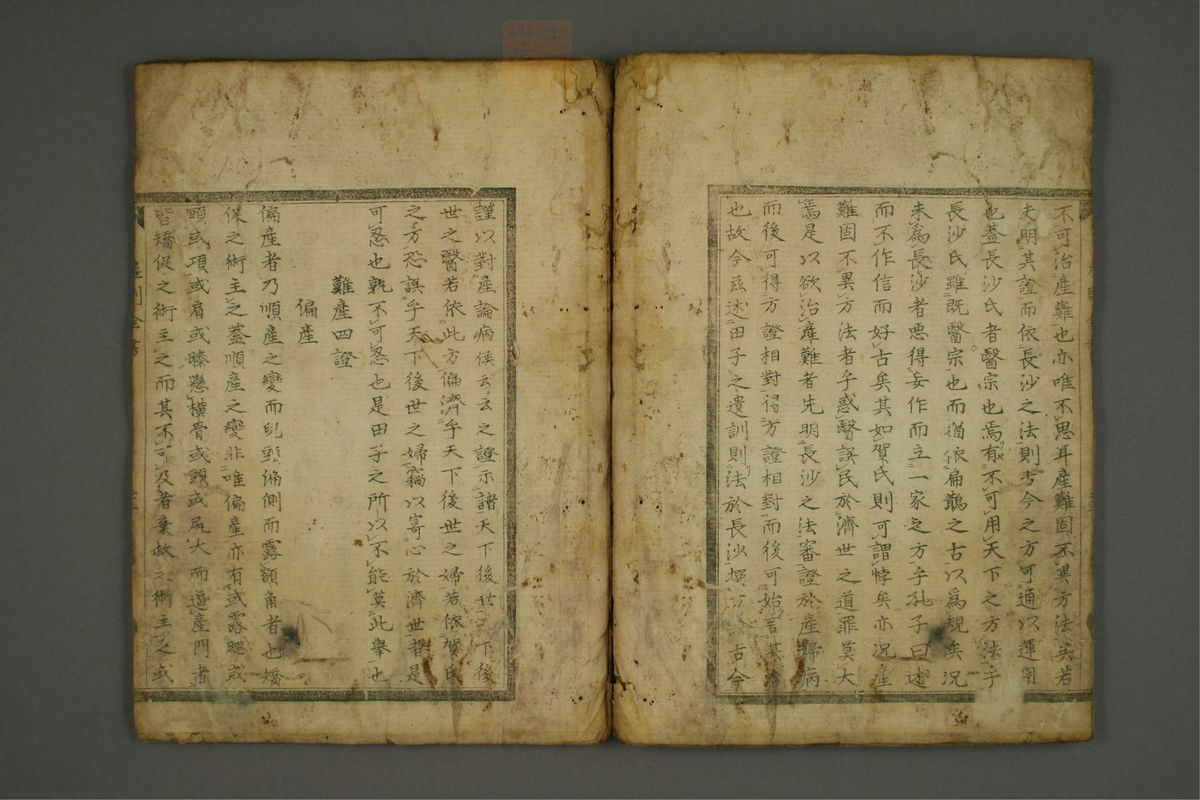 不可治產難也亦唯不思耳產難固不異方法矣若
夫明其證而依長沙之法則古今之方可通以運用
也蓋長沙氏者醫宗也焉有不可用天下之方法乎
長沙氏雖既醫宗也而猶依扁鵲之古以爲規矣况
未爲長沙者惡得妄作而立一家之方乎孔子曰述
而不作信而好古矣其如賀氏則可謂悖矣亦况產
難固不異方法者乎惑醫誤民於濟世之道罪莫大
焉是以欲治產難者先明長沙之法審證於產婦病
而後可得方證相對得方證相對而後可始言其治
也故今茲述田子之遺訓則法於長沙撰方於古今
謹以對產論病候云云之證示諸天下後世天下後
世之醫若依此方偏濟乎天下後世之婦若依賀氏
之方恐誤乎天下後世之婦竊以寄心於濟世者是
可忍也孰不可忍也是田子之所以不能莫此舉也
難產四證
偏產
偏產者乃順產之變而兒頭偏側而露額角者也矯
保之術主之蓋順產之變非唯偏產亦有或露腮或
頭或項或肩或膝懸橫骨或頭或尻大而逼產門者
皆矯促之術主之而其不可及者棄救之術主之或